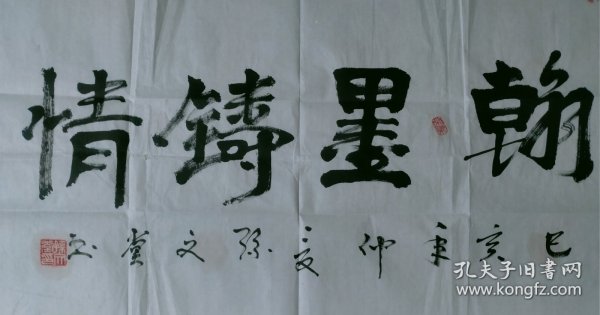 翰墨铸情
己亥年仲夏孙文党书
孔夫子旧书网
www.kongfz.com